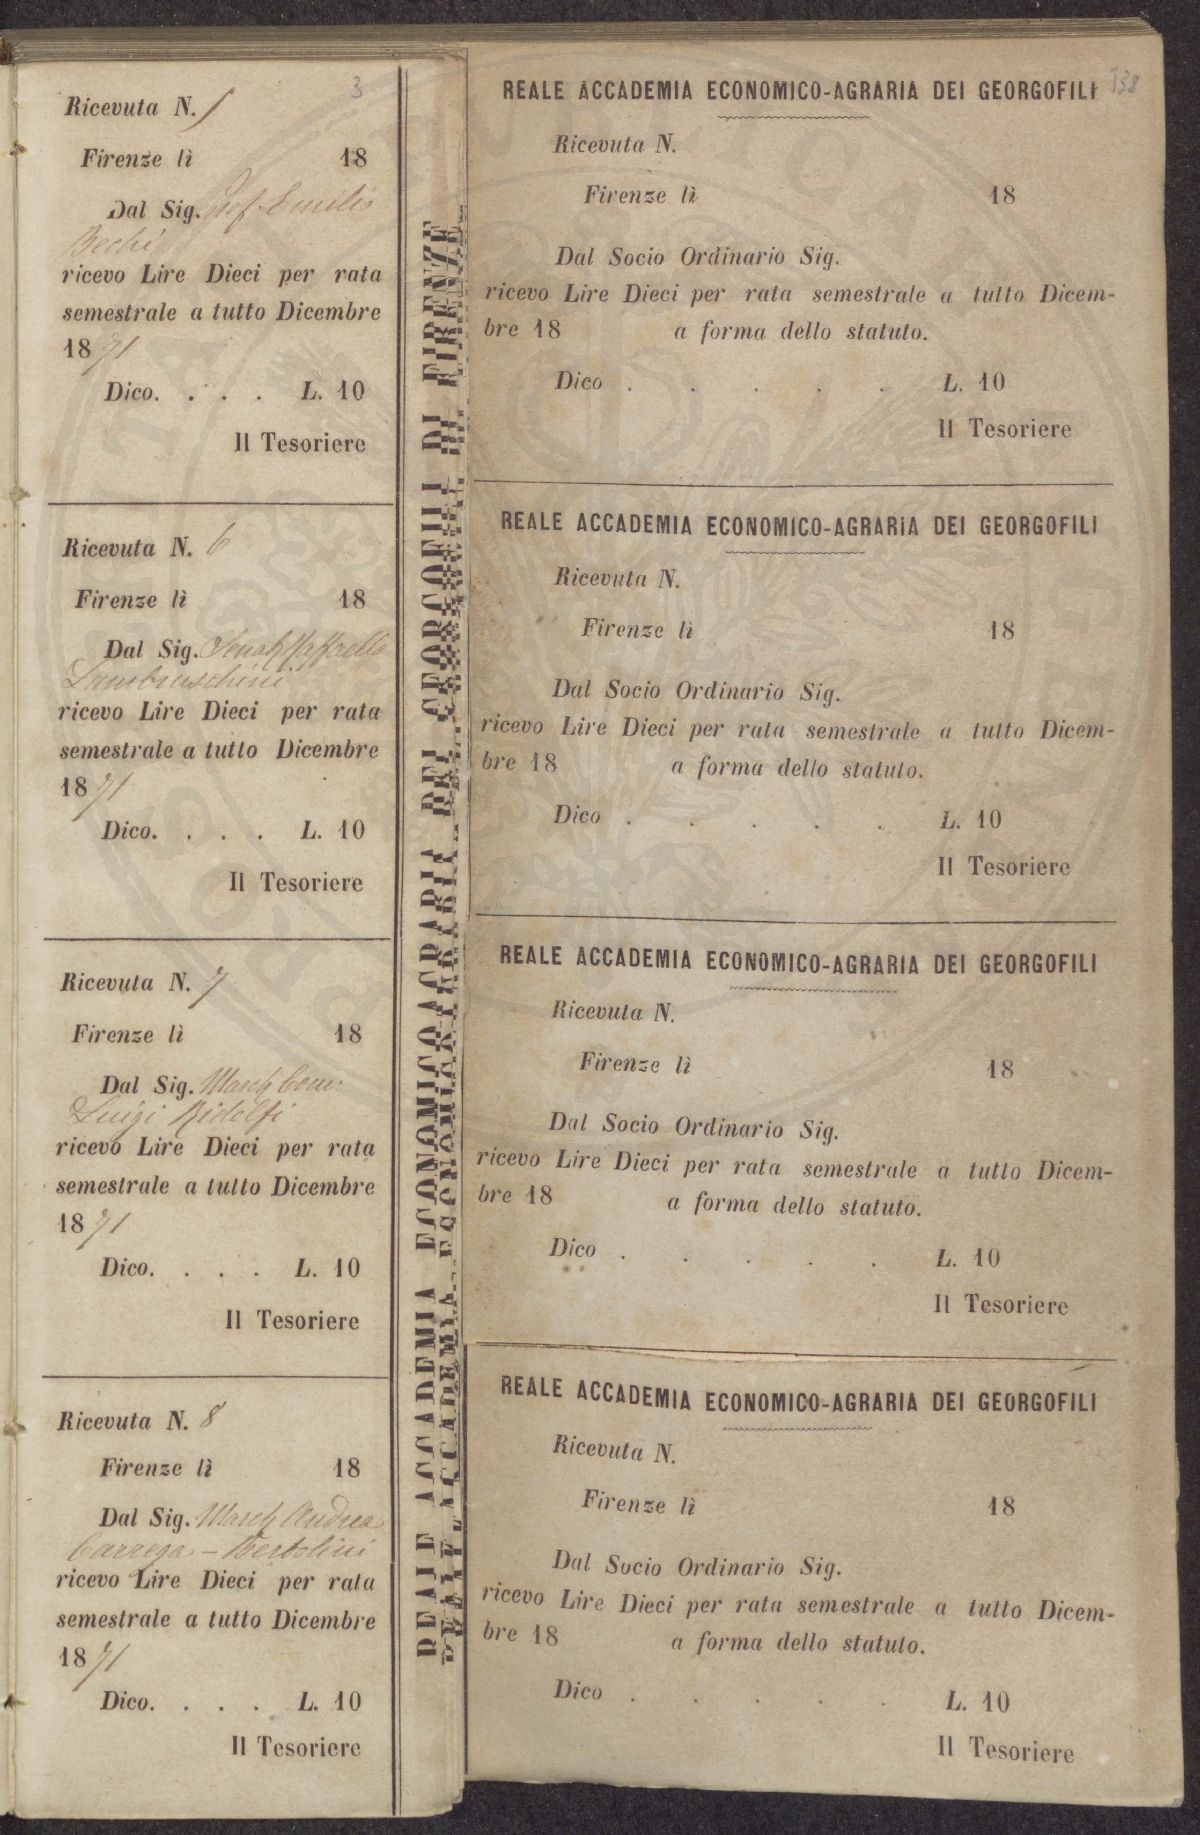 3
Ricevuta N. 5
Firenze lì 18
Dal Sig. Prof. Emilio
Bechi
ricevo Lire Dieci per rata
semestrale a tutto Dicembre
1871
Dico. . . . L. 10
Il Tesoriere
Ricevuta N. 6
Firenze lì 18
Dal Sig. Senat. Raffaello
Lambruschini
ricevo Lire Dieci per rata
semestrale a tutto Dicembre
1871
Dico. . . . L. 10
Il Tesoriere
Ricevuta N. 7
Firenze lì 18
Dal Sig. March. Com.
Luigi Ridolfi
ricevo Lire Dieci per rata
semestrale a tutto Dicembre
1871
Dico. . . . L. 10
Il Tesoriere
Ricevuta N. 8
Firenze lì 18
Dal Sig. March. Andrea
Carrega - Bertolini
ricevo Lire Dieci per rata
semestrale a tutto Dicembre
1871
Dico. . . . L. 10
Il Tesoriere
REALE ACCADEMIA ECONOMICO AGRARIA DEI GEORGOFILI DI FIRENZE
138
REALE ACCADEMIA ECONOMICO-AGRARIA DEI GEORGOFILI
Ricevuta N.
Firenze lì 18
Dal Socio Ordinario Sig.
ricevo Lire Dieci per rata semestrale a tutto Dicem-
bre 18 a forma dello statuto.
Dico . . . . . L. 10
Il Tesoriere
REALE ACCADEMIA ECONOMICO-AGRARIA DEI GEORGOFILI
Ricevuta N.
Firenze lì 18
Dal Socio Ordinario Sig.
ricevo Lire Dieci per rata semestrale a tutto Dicem-
bre 18 a forma dello statuto.
Dico . . . . . L. 10
Il Tesoriere
REALE ACCADEMIA ECONOMICO-AGRARIA DEI GEORGOFILI
Ricevuta N.
Firenze lì 18
Dal Socio Ordinario Sig.
ricevo Lire Dieci per rata semestrale a tutto Dicem-
bre 18 a forma dello statuto.
Dico . . . . . L. 10
Il Tesoriere
REALE ACCADEMIA ECONOMICO-AGRARIA DEI GEORGOFILI
Ricevuta N.
Firenze lì 18
Dal Socio Ordinario Sig.
ricevo Lire Dieci per rata semestrale a tutto Dicem-
bre 18 a forma dello statuto.
Dico . . . . . L. 10
Il Tesoriere